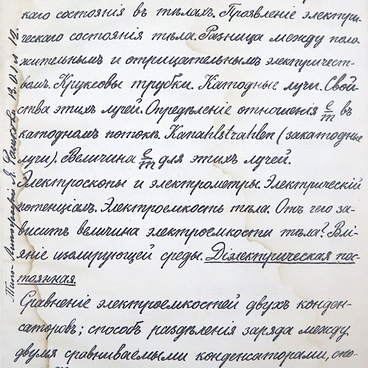 каго состоянія въ тѣлахъ. Проявленіе электри-
ческаго состоянія тѣла. Разница между поло-
жительнымъ и отрицательнымъ электричест-
вам. Круксовы трубки. Катодные лучи. Свой-
ства этихъ лучей. Опредѣленіе отношенія e/m въ
катодномъ потокѣ. Kanahlstrahlen (закатодные
лучи). Величина e/m для этихъ лучей.
Электроскопы и электрометры. Электрическій
потенціалъ. Электроемкость тѣла. Отъ чего за-
виситъ величина электроемкости тѣла? Влі-
яніе изолирующей среды. Діэлектрическая пос-
тоянная.
Сравненіе электроемкостей двухъ конден-
саторовъ; способъ раздѣленія заряда между
двумя сравниваемыми конденсаторами, спо-
Типо-Литографія